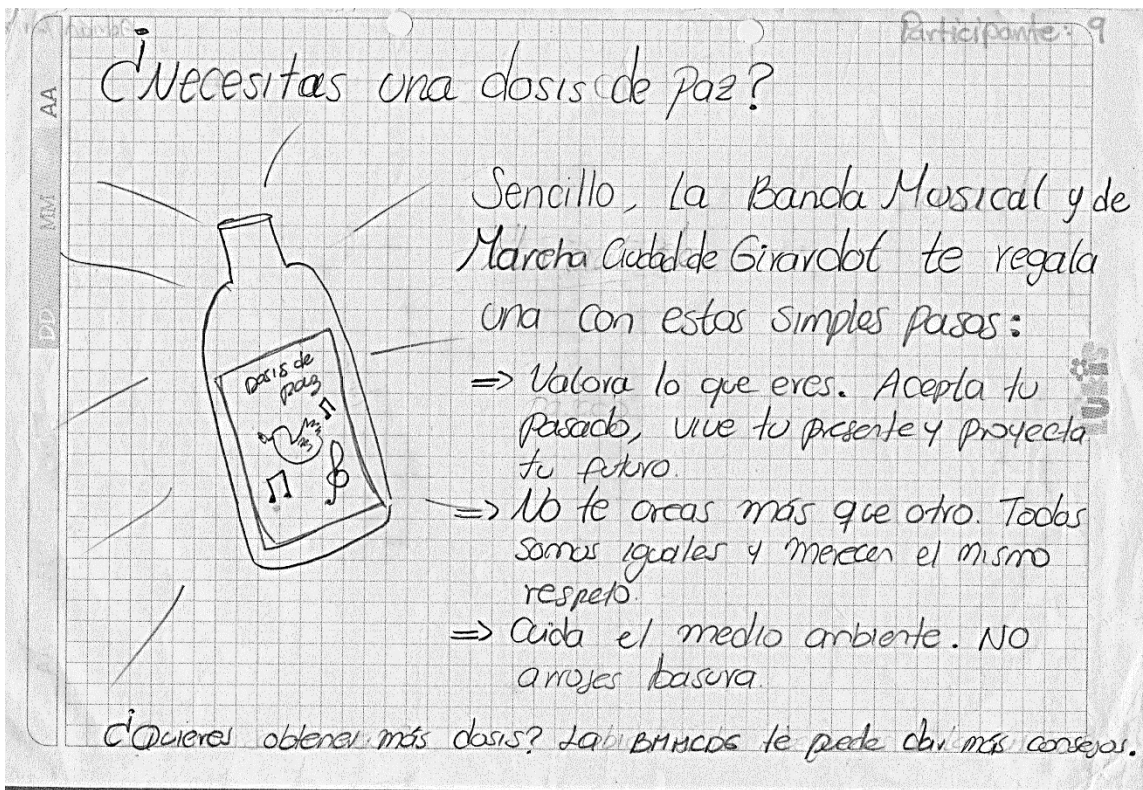 Participante: 9
¿Necesitas una dosis de paz?
Sencillo, La Banda Musical y de
Marcha Ciudad de Girardot te regala
una con estos simples pasos:
Dosis de
paz
=> Valora lo que eres. Acepta tu
pasado, vive tu presente y proyecta
tu futuro.
=> No te creas más que otro. Todos
somos iguales y merecen el mismo
respeto.
=> Cuida el medio ambiente. NO
arrojes basura.
¿Quieres obtener más dosis? La BMMCDG te puede dar más consejos.
DD MM AA